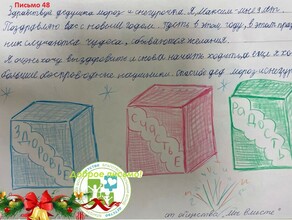 Письмо 48
Здравствуй дедушка мороз и снегурочка. Я Максим мне 9 лет.
Поздравляю вас с новым годом. Пусть в этом году, в этот праз
ник случаются чудеса, сбываются желания.
Я очень хочу выздороветь и снова начать ходить и еще я хочу
большие беспроводные наушники. Спасибо дед мороз и снегур
ЗДОРОВЬЕ
СЧАСТЬЕ
РАДОСТЬ
Доброе письмо!
от общества "мы вместе"